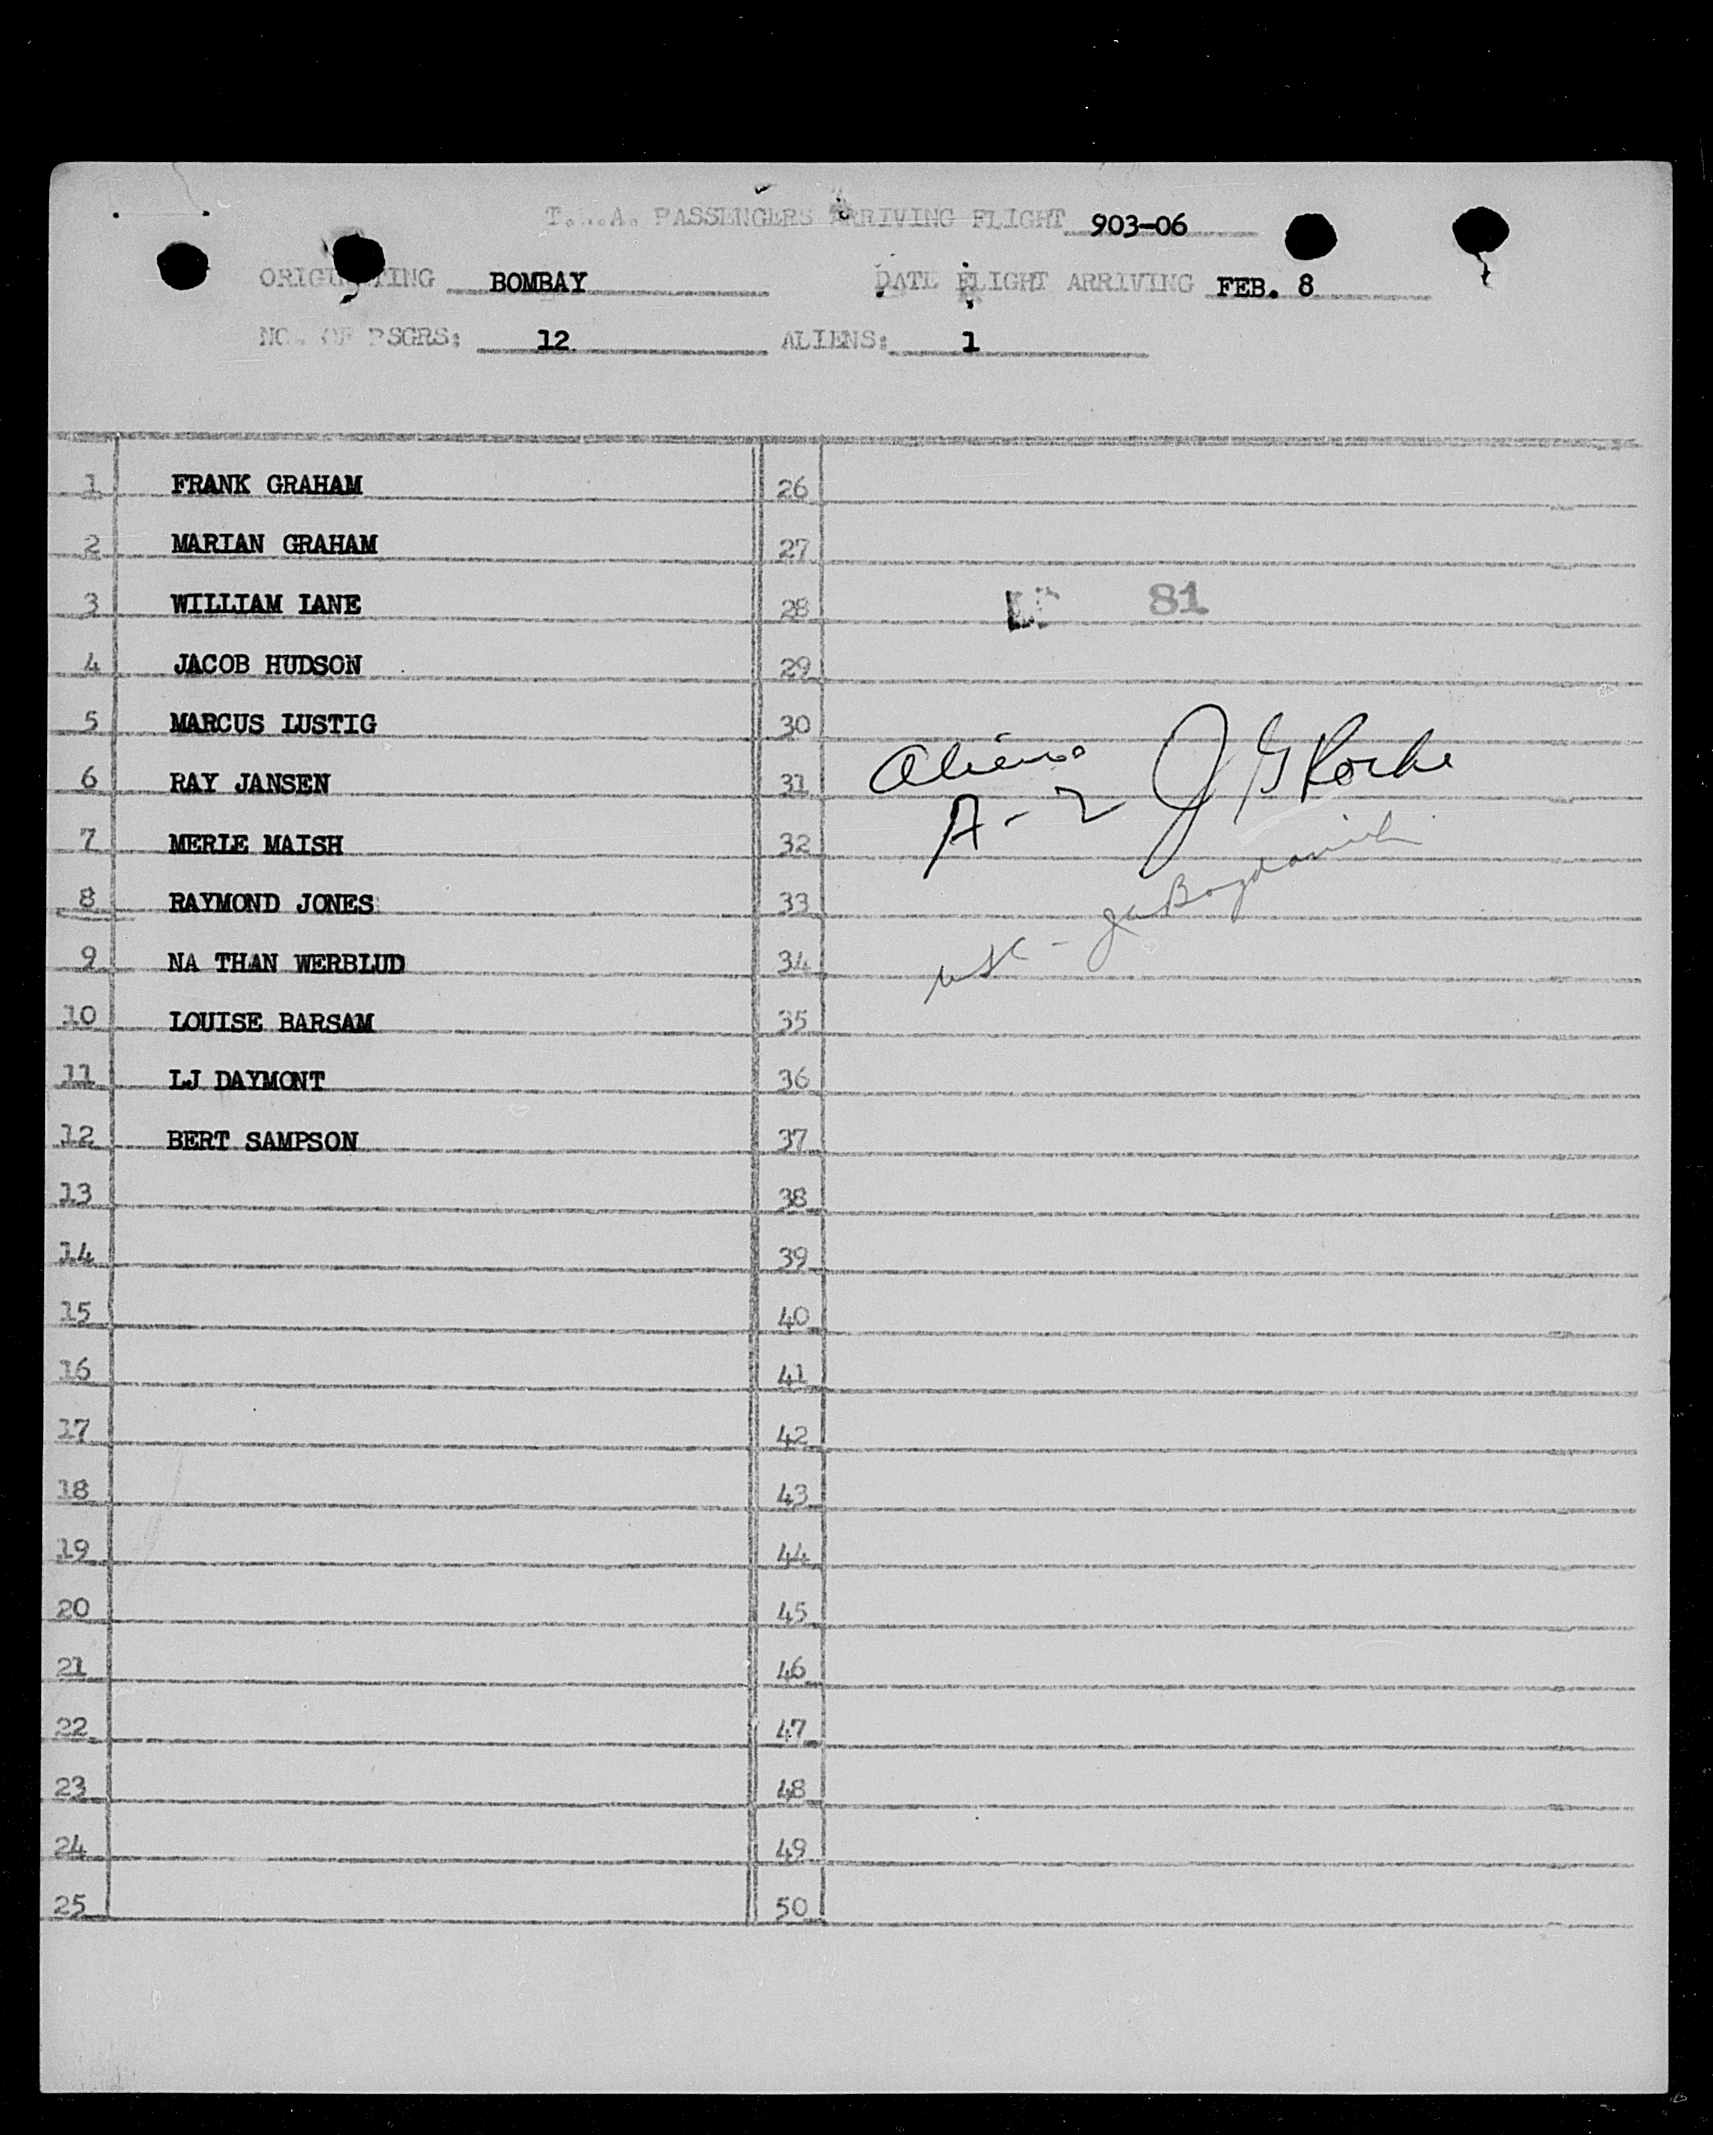 T.W.A. PASSENGERS ARRIVING FLIGHT 903-06
ORIGINATING BOMBAY DATE FLIGHT ARRIVING FEB. 8
NO. OF PSGRS: 12 ALIENS: 1
1 FRANK GRAHAM 26
2 MARIAN GRAHAM 27
3 WILLIAM LANE 28 81
4 JACOB HUDSON 29
5 MARCUS LUSTIG 30
Aliens J G Roche
6 RAY JANSEN 31
A-2
7 MERLE MAISH 32
8 RAYMOND JONES 33
Bogdanich
9 NA THAN WERBLUD 34
usc -
10 LOUISE BARSAM 35
11 LJ DAYMONT 36
12 BERT SAMPSON 37
13 38
14 39
15 40
16 41
17 42
18 43
19 44
20 45
21 46
22 47
23 48
24 49
25 50